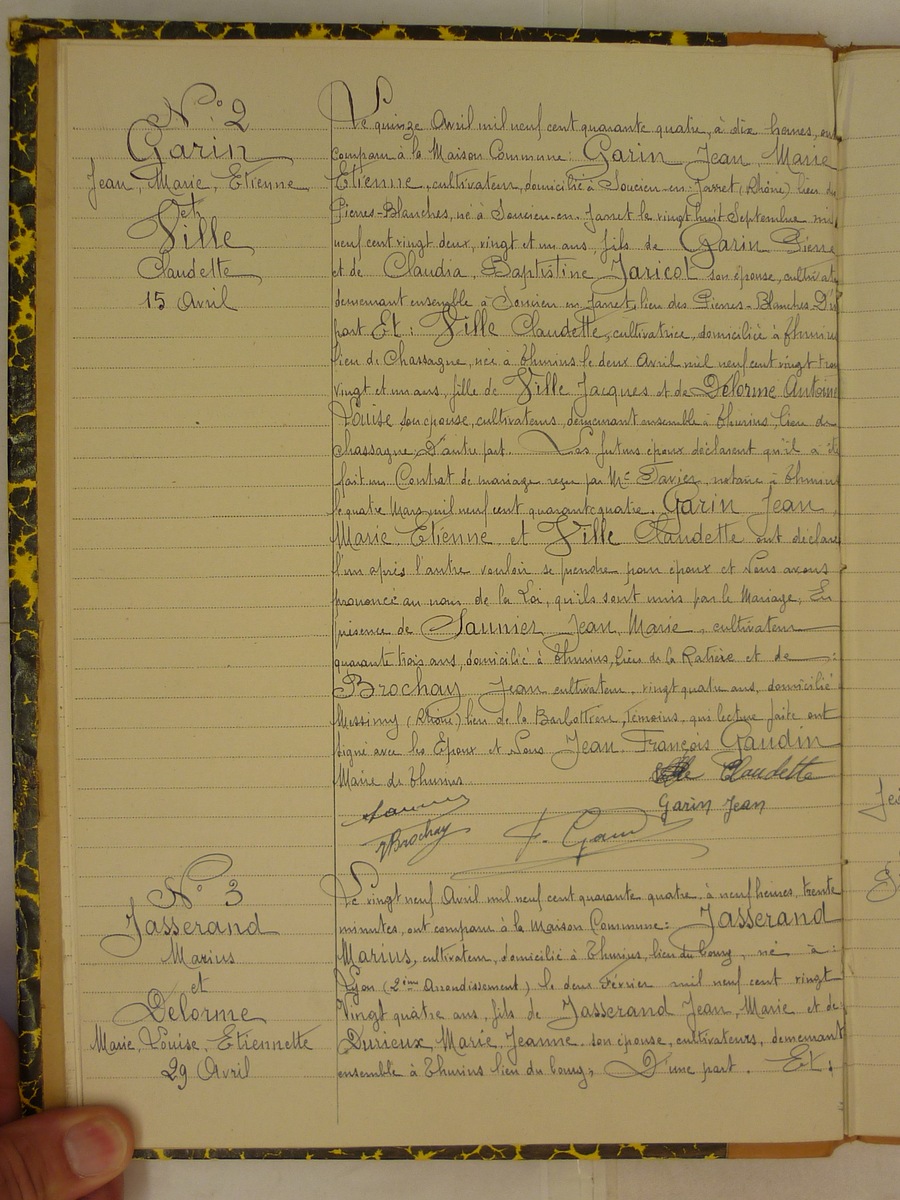 N° 2
Garin
Jean, Marie, Etienne
et
Ville
Claudette
15 Avril
Le quinze Avril mil neuf cent quarante quatre, à dix heures, ont
comparu à la Maison Commune: Garin Jean, Marie
Etienne, cultivateur, domicilié à Soucieu-en-Jarret (Rhône) lieu des
Pierres-Blanches, né à Soucieu-en-Jarret le vingt huit Septembre mil
neuf cent vingt deux, vingt et un ans, fils de Garin Pierre
et de Claudia, Baptistine Jaricot son épouse, cultivate
demeurant ensemble à Soucieu en Jarret, lieu des Pierres-Blanches. D'u
part Et: Ville Claudette, cultivatrice, domiciliée à Thurins
lieu de Chassagne, née à Thurins le deux Avril mil neuf cent vingt trois
vingt et un ans, fille de Ville Jacques et de Delorme Antoine
Louise son épouse, cultivateurs, demeurant ensemble à Thurins, lieu de
chassagne. D'autre part. Les futurs époux déclarent qu'il a été
fait un Contrat de mariage reçu par Me Favier, notaire à Thurins
le quatre Mars mil neuf cent quarante quatre. Garin Jean
Marie, Etienne et Ville Claudette ont déclaré
l'un après l'autre vouloir se prendre pour époux et Nous avons
prononcé au nom de la Loi, qu'ils sont unis par le Mariage, En
présence de Saunier Jean, Marie, cultivateur
quarante trois ans, domicilié à Thurins, lieu de la Ratière et de
Brochay Jean cultivateur, vingt quatre ans, domicilié
Messimy (Rhône) lieu de la Barbottière, témoins, qui lecture faite ont
signé avec les Epoux et Nous Jean François Gaudin
Maire de Thurins
Ville Claudette
Garin Jean
Saunier
J Brochay
F. Gaudin
N° 3
Jasserand
Marius
et
Delorme
Marie, Louise, Etiennette
29 Avril
Le vingt neuf Avril mil neuf cent quarante quatre, à neuf heures, trente
minutes, ont comparu à la Maison Commune: Jasserand
Marius, cultivateur, domicilié à Thurins, lieu du bourg, né à:
Lyon (2ème Arrondissement) le deux Février mil neuf cent vingt
Vingt quatre ans, fils de Jasserand Jean, Marie et de
Durieux Marie Jeanne son épouse, cultivateurs, demeurant
ensemble à Thurins lieu du bourg, D'une part. Et: